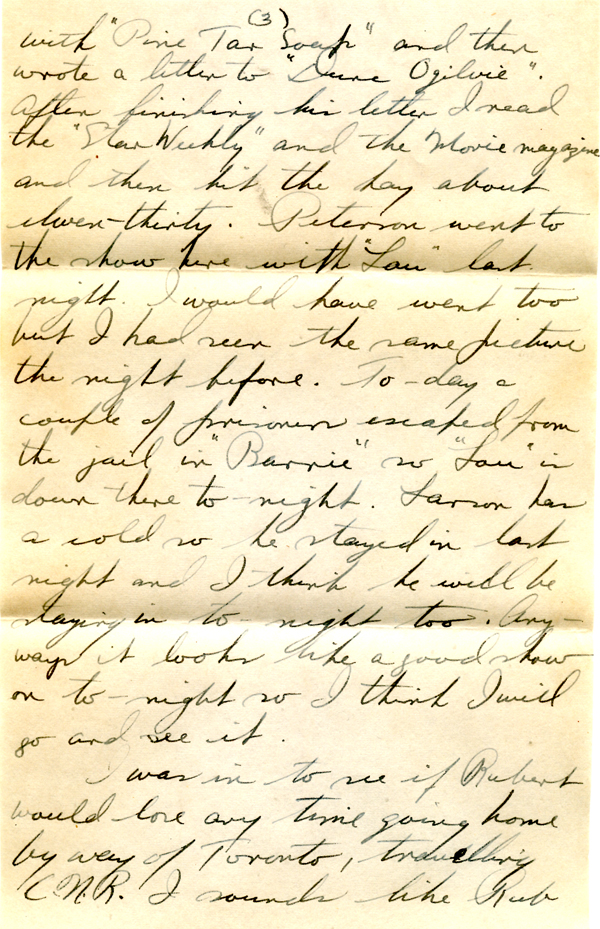 (3)
with "Pine Tar Soap" and then
wrote a letter to "Dune Ogilvie".
After finishing his letter I read
the "Star Weekly" and the Movie magazine
and then hit the hay about
eleven-thirty. Peterson went to
the show here with "Lou" last
night. I would have went too
but I had seen the same picture
the night before. To-day a
couple of prisoners escaped from
the jail in "Barrie" so "Lou" is
down there to-night. Larson has
a cold so he stayed in last
night and I think he will be
staying in to-night too. Any-
ways it looks like a good show
on to-night so I think I will
go and see it.
I was in to see if Rubert
would lose any time going home
by way of Toronto, travelling
C.N.R. I sounds like Rub